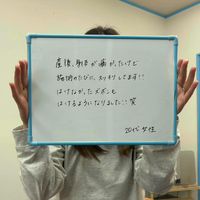 産後、身体が痛かったけど
施術のたびに、スッキリしてます!!
はけなかったズボンも
はけるようになりました!!笑
20代 女性